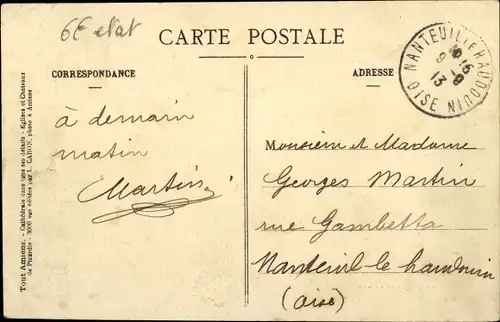 6E etat
CARTE POSTALE
CORRESPONDANCE
ADRESSE
NANTEUIL-LE-HAUDOUIN
OISE
à demain
matin
Martin
Monsieur et Madame
Georges Martin
rue Gambetta
Nanteuil-le-haudouin
(Oise)
Tout Amiens. - Cathédrale dans tous ses détails - Eglises et Chateaux
de Picardie - 3000 vues éditées par L. CARON, photo à Amiens